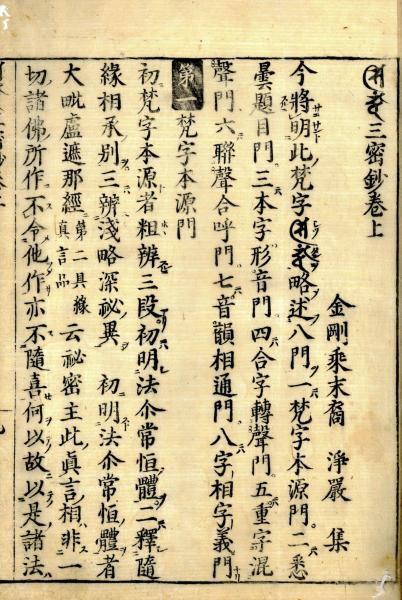 三密鈔卷上
金剛乘末裔　淨嚴　集
今將明此梵字略述八門一梵字本源門二悉
曇題目門三本字形音門四合字轉聲門五重字混
聲門六聯聲合呼門七音韻相通門八字相字義門
第一梵字本源門
初梵字本源者粗辨三段初明法尒常恒體二釋隨
緣相承別三辨淺略深祕異　初明法尒常恒體者
大毗盧遮那經第二具緣真言品云祕密主此眞言相非一
切諸佛所作不令他作亦不隨喜何以故以是諸法